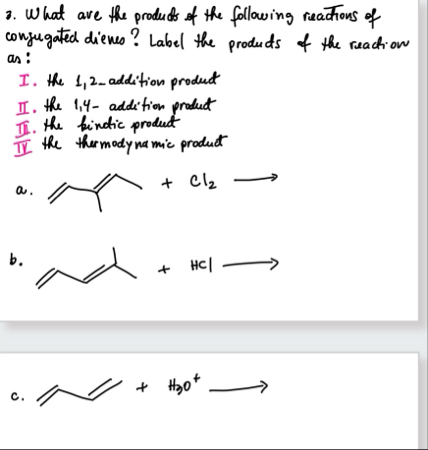 2. What are the products of the following reactions of
conjugated dienes? Label the products of the reaction
as:
I. the 1,2-addition product
II. the 1,4- addition product
III. the kinetic product
IV the thermodynamic product
a. + Cl2 →
b. + HCl →
c. + H3O+ →